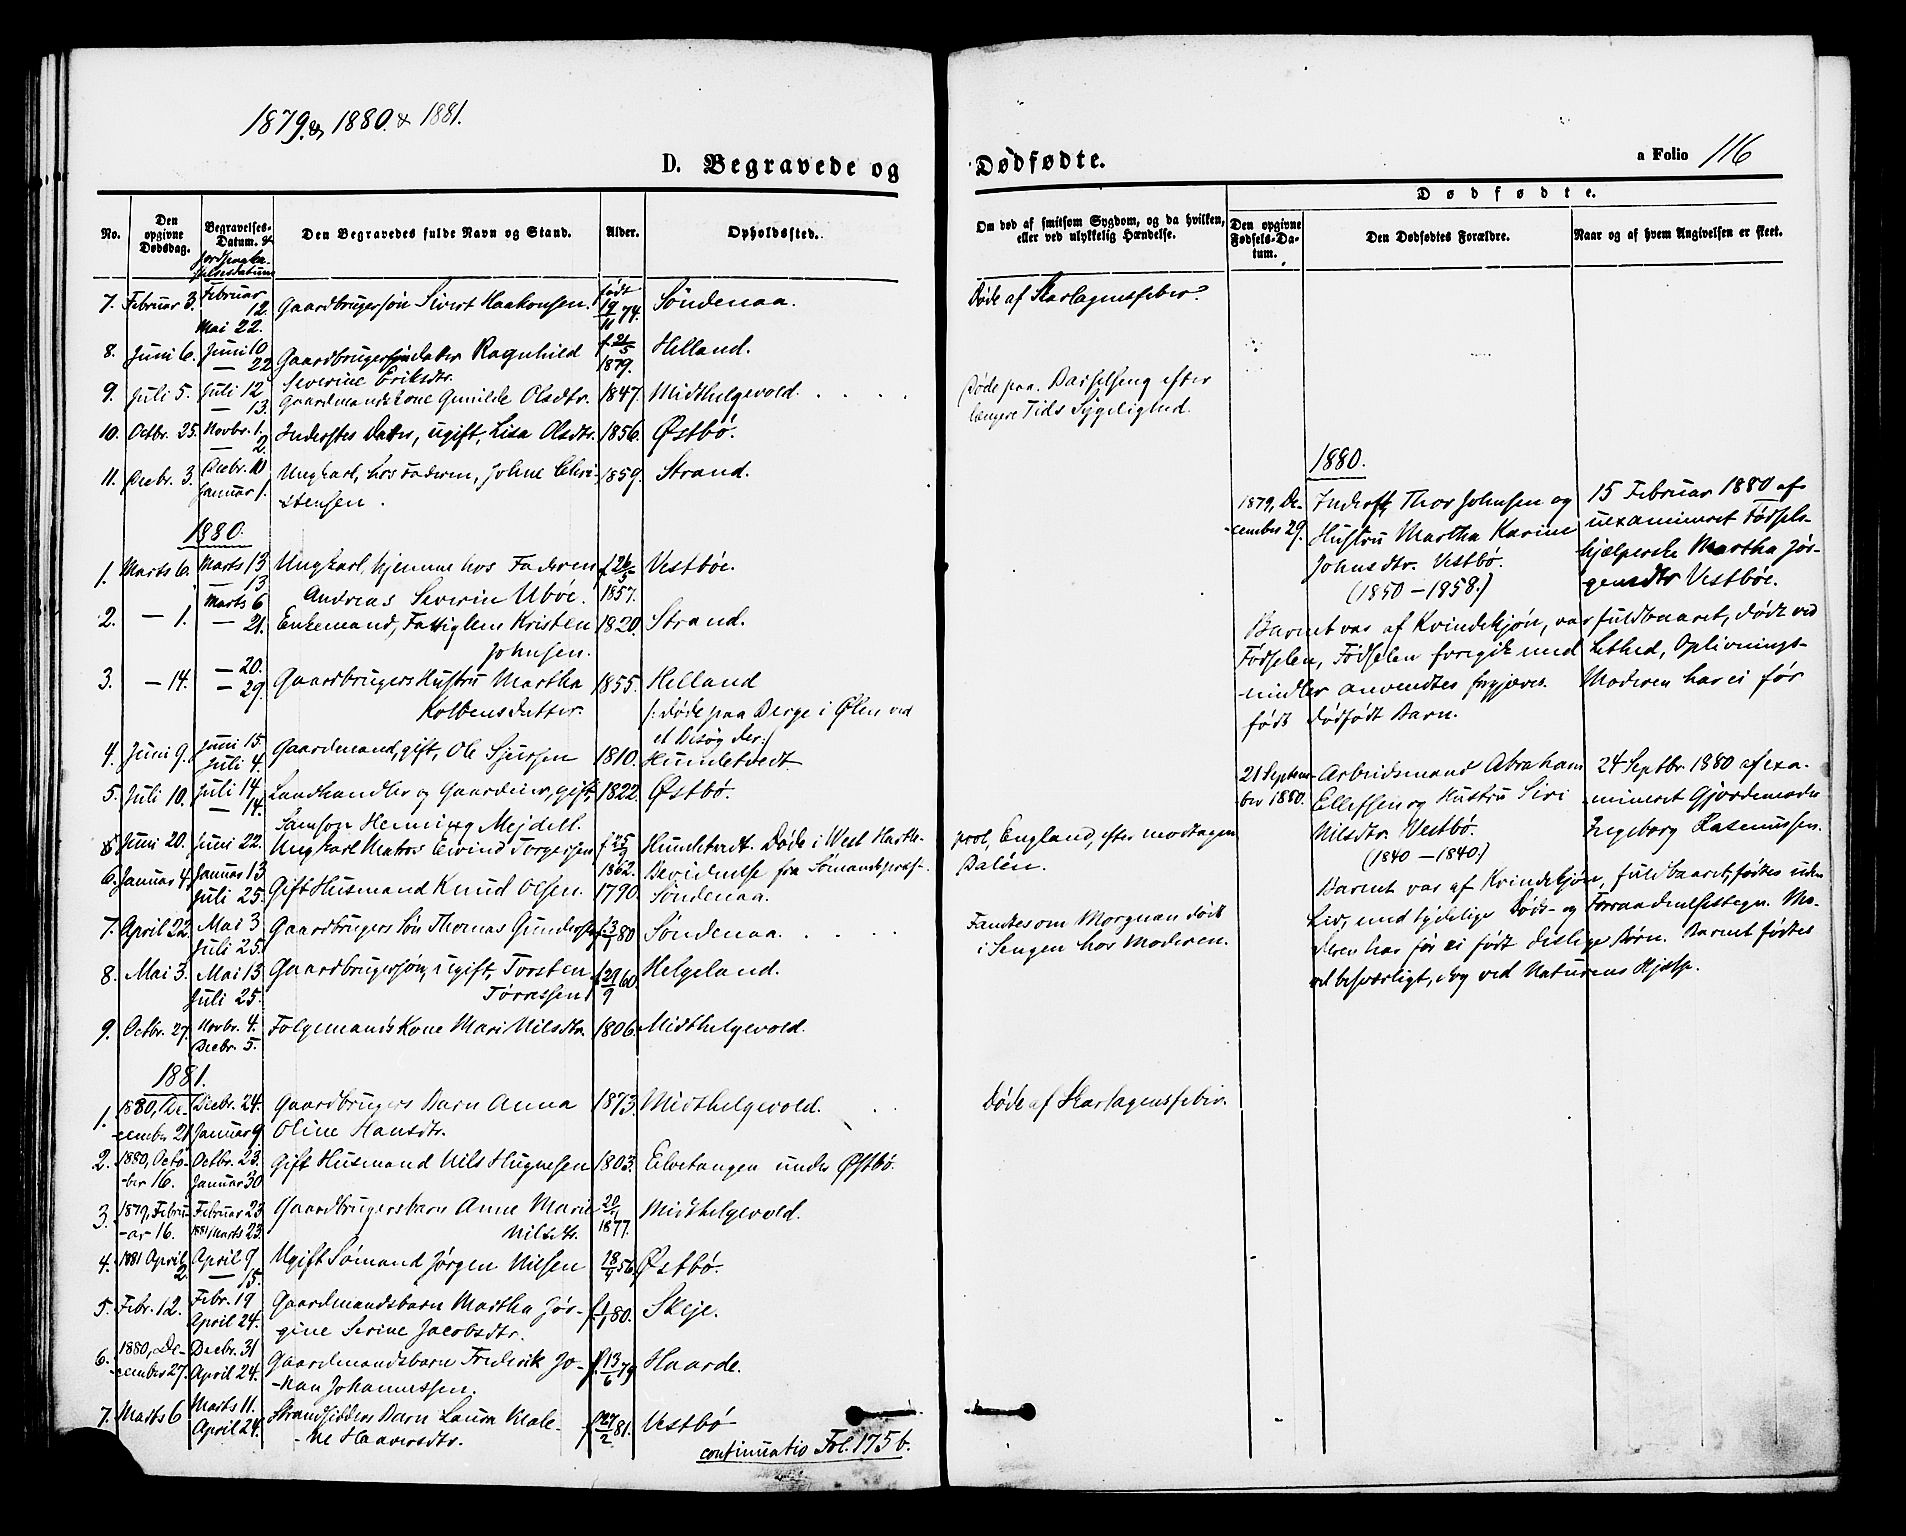 1879. & 1880. & 1881.
D. Begravede og
No.
Den opgivne Dødsdag.
Begravelses-Datum. & Jordpaakastelsesdatum
Den Begravedes fulde Navn og Stand.
Alder.
Opholdssted.
7. Februar 3. Februar 12. Gaardbrugersøn Sivert Haakonsen. født 19/11 74. Søndenaa.
Mai 22.
8. Juni 6. Juni 10 Gaardbruger Datter Ragnhild f. 21/5 Helland.
— 22 Severine Eriksdtr. 1879.
9. Juli 5. Juli 12 Gaardmandskone Gunilde Olsdtr. 1847. Midthelgevold.
— 13.
10. Octbr. 25. Novbr. 1. Inderstes Datter, ugift, Lisa Olsdtr. 1856. Østbø.
— 2.
11. Decbr. 3. Decbr. 10 Ungkarl, hos Faderen, Johne Chri- 1859. Strand.
Januar 1. stensen.
1880.
1. Marts 6. Marts 13 Ungkarl, hjemme hos Faderen f. 26/5 Vestbøe.
— 13 Andreas Severin Ubøe. 1857.
2. — 1. Marts 6
— 21. Enkemand, Fattiglem Kristen 1820. Strand.
Johnsen.
3. — 14. — 20.
— 29. Gaardbrugers Hustru Martha 1855. Helland
Kolbensdatter. /: Døde paa Berge i Ølen ved
et Besøg der:/
4. Juni 9. Juni 15. Gaardmand, gift, Ole Sjursen 1810. Hundetvedt
Juli 4.
5. Juli 10. Juli 14. Landhandler og Gaardeier, gift, 1822. Østbø.
— 14. Samson Henning Mejdell.
Juni 20. Juni 22. Ungkarl Matros Eivind Torgersen f. 25/9 Hundetvedt. Døde i West Hartle-
6. Januar 4. Januar 13 1862. Bevidnelse fra Sømandspræst
Juli 25. Gift Husmand Knud Olsen. 1790. Søndenaa.
7. April 22. Mai 3. Gaardbrugers Søn Thomas Gunders f. 3/1 80 Søndenaa.
Juli 25.
8. Mai 3. Mai 13 Gaardbrugersøn, ugift, Torsten f. 29/9 60. Helgeland.
Juli 25. Tørressen
9. Octbr. 27. Novbr. 4. Folgemands Kone Mari Nilsdtr. 1806. Midthelgevold.
Decbr. 5.
1881.
1. 1880, De- Decbr. 24. Gaardbrugers Barn Anna 1873. Midthelgevold.
cember 21 Januar 9. Oline Hansdtr.
2. 1880, Octo- Octbr. 23. Gift Husmand Nils Hugnesen 1803. Eilvetangen under Østbø.
ber 16. Januar 30
3. 1879, Febru- Februar 23 Gaardbrugersbarn Anne Marie 20/ Midthelgevold.
ar 16. 1881 Marts 23. Nilsdtr. 1877.
4. 1881 April 2. April 9 Ugift Sømand Jørgen Nilsen 18/9 56. Østbø.
— 15.
5. Febr. 12. Febr. 19 Gaardmandsbarn Martha Jør- f. 1/1 80. Skeje.
April 24. gine Serine Jacobsdtr.
6. 1880, De- Decbr. 31 Gaardmandsbarn Frederik Jo- f. 13/6 79 Haarde.
cember 27. April 24. han Johannessen.
7. Marts 6 Marts 11. Strandsidders Barn Laura Male- f. 27/2 81. Vestbø
April 24. ne Haaversdtr.
continuatio Fol. 175 b.
Dødfødte.
a Folio 116
Om død af smitsom Sygdom, og da hvilken, eller ved ulykkelig Hændelse.
Dødfødte.
Den opgivne Fødsels-Datum.
Den Dødfødtes Forældre.
Naar og af hvem Angivelsen er skeet.
Døde af Skarlagensfeber.
Døde paa Barselseng efter
længere Tids Sygelighed.
pool, England, efter modtagen
Dalén.
Fandtes om Morgnan død
i Sengen hos Moderen.
Døde af Skarlagensfeber.
1880.
1879, De- Inderst, Thor Johnsen og 15 Februar 1880 af
cember 29. Hustru Martha Karine uexamineret Fødsels-
Johnsdtr. Vestbø. hjælperske Martha Jør-
(1850 — 1858.) gensdtr Vestbøe.
Barnet var af Kvindekjøn, var fuldbaaret, dødt ved
Fødselen, Fødselen foregik med Lethed, Oplivnings-
midler anvendtes forgjæves. Moderen har ei før
født dødfødt Barn.
21 Septem- Arbeidsmand Abraham 24 Septbr. 1880 af exa-
ber 1880. Ellefsen og Hustru Siri mineret Gjordemoder
Nilsdtr. Vestbø. Ingeborg Rasmussen.
(1840 — 1840.)
Barnet var af Kvindekjøn, fuldbaaret, fødtes uden
Liv, med tydelige Døds- og Forraadnelsestegn. Mo-
deren har før ei født deslige Børn. Barnet fødtes
vel besværligt, dog ved Naturens Hjælp.